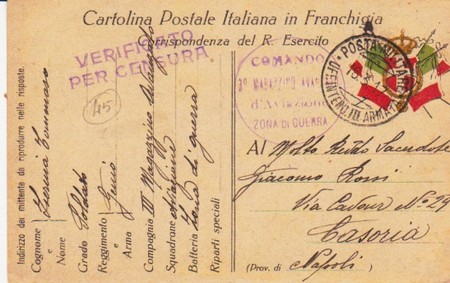 Cartolina Postale Italiana in Franchigia
Corrispondenza del R. Esercito
VERIFICATO
PER CENSURA
45
COMANDO
d'Aviazione
ZONA DI GUERRA
POSTA MILITARE
INTEND. ARMATA
Al Molto Rev.do Sacerdote
Giacomo Rossi
Via Cavour No 29
Casoria
(Prov. di Napoli)
Indirizzo del mittente da riprodurre nelle risposte.
Cognome
e
Nome Tommaso
Grado Soldato
Reggimento
o
Arma Genio
Compagnia III Magazzino Avanzato
Squadrone Aviazione
Batteria Zona di guerra
Riparti speciali